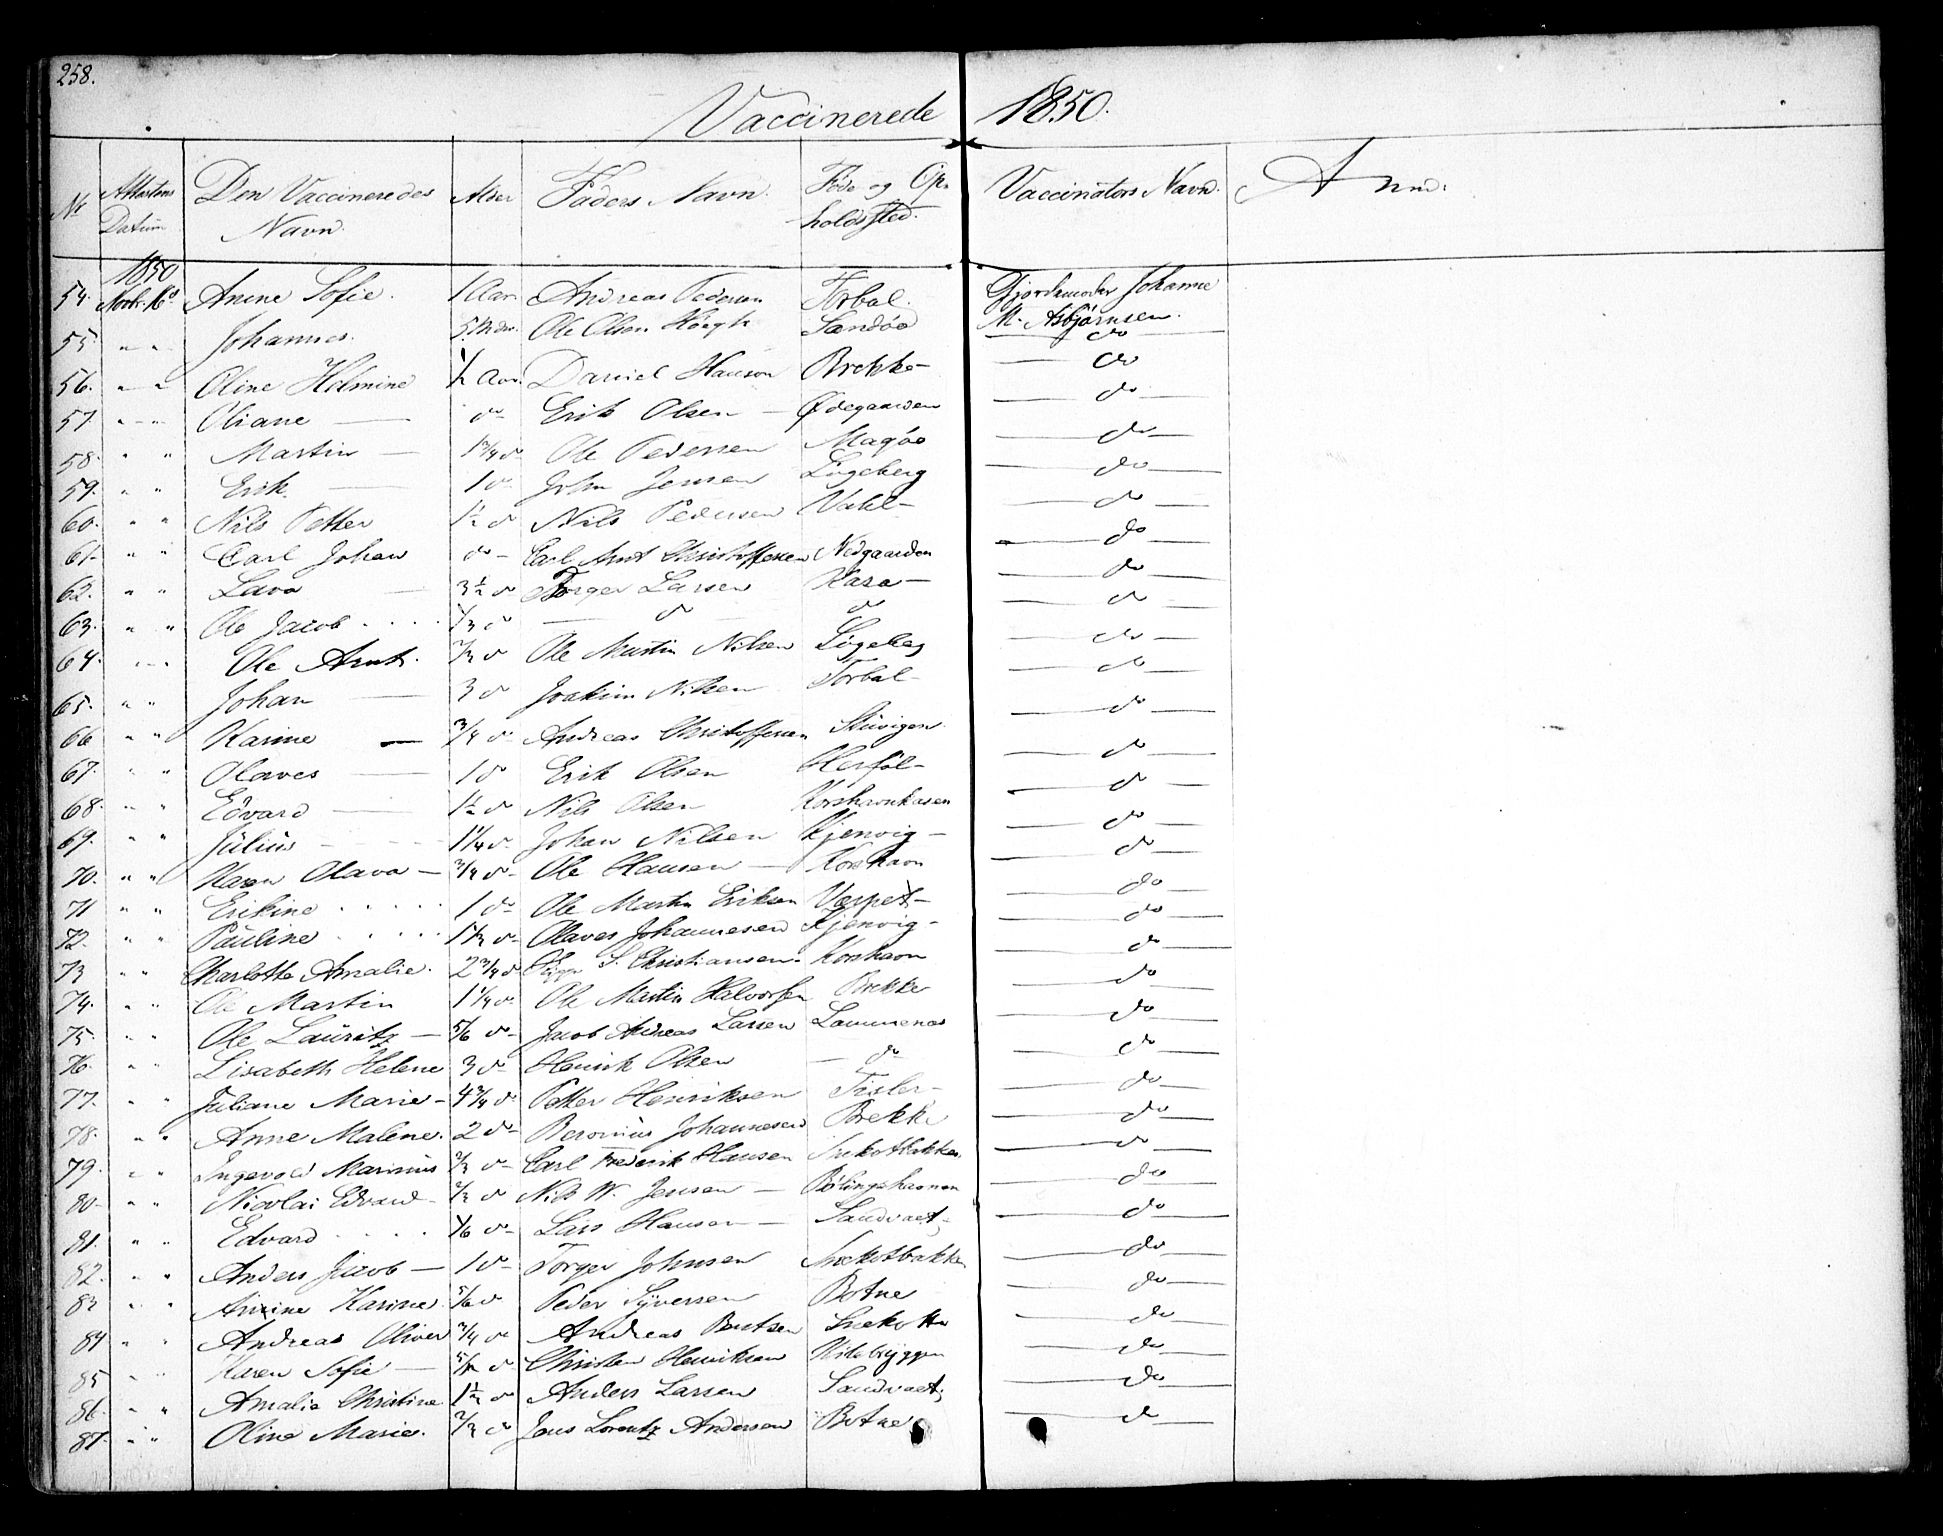 258.
Vaccinerede 1850.
No Attestens Datum Den Vaccineredes Navn. Alder Faders Navn. Føde og Opholdssted. Vaccinators Navn. Anm:
1850
54. Novbr. 16d Anine Sofie. 1 Aar Andreas Pedersen Torbal. Gjordemoder Johanne M. Asbjørnsen.
55 " " Johannes. Ole Olsen Høegh Sandøe do
56. " " Oline Holmine ½ Aar Daniel Hansen Brekke do
57. " " Oliane do Erik Olsen Ødegaarden do
58. " " Martin 1¾ d Ole Pedersen Magøe do
59. " " Erik 1 d John Jensen Lögeberg do
60. " " Nils Petter 1½ d Nils Pedersen Vahl do
61. " " Carl Johan do Carl Arnt Christoffersen Nedgaarden do
62. " " Lava 3½ d Torger Larsen Kasa do
63. " " Ole Jacob d do do do
64. " " Ole Arnt. d Ole Martin Nilsen Lögeberg do
65. " " Johan 3 d Joakim Nilsen Torbal do
66 " " Karine ¾ d Andreas Christoffersen Stuvigen do
67. " " Olaves 1 d Erik Olsen Herföl do
68. " " Edvard 1½ d Nils Olsen Korshavnkasen do
69. " " Julius 1¼ d Johan Nilsen Kjenvig do
70. " " Karen Olava ¾ d Ole Hansen Korshavn do
71 " " Erikine 1 d Ole Martin Eriksen Vesper do
72. " " Pauline d Olaves Johannesen Kjenvig do
73 " " Charlotte Amalie. 2¾ d S. Christiansen Korshavn do
74. " " Ole Martin 1¼ d Ole Martin Halvorsen Brekke do
75. " " Ole Lauritz 5/6 d Jacob Andreas Larsen Lammenes do
76. " " Lisabeth Helene 3 d Henrik Olsen do do
77. " " Juliane Marie 4¾ d Petter Henriksen Tisler do
78. " " Anne Malene. 2 d Beronius Johannesen Brekke do
79. " " Ingevold Marinus d Carl Frederik Hansen Snekotbakken do
80. " " Nicolai Edvard d Nils W. Jensen Bölingshavnen do
81. " " Edvard 1/6 d Lars Hansen Sandvaet do
82. " " Anders Jacob 1 d Torger Johnsen Snekotbakken do
83 " " Karine 5/6 d Peder Syversen Botne do
84 " " Andreas Oliver ¾ d Andreas Berntsen Snekotte do
85 " " Karen Sofie d Christen Henriksen Kilebryggen do
86. " " Amalie Christine 1½ d Anders Larsen Sandvaet do
87. " " Oline Marie. d Jens Lorentz Andersen Botne do